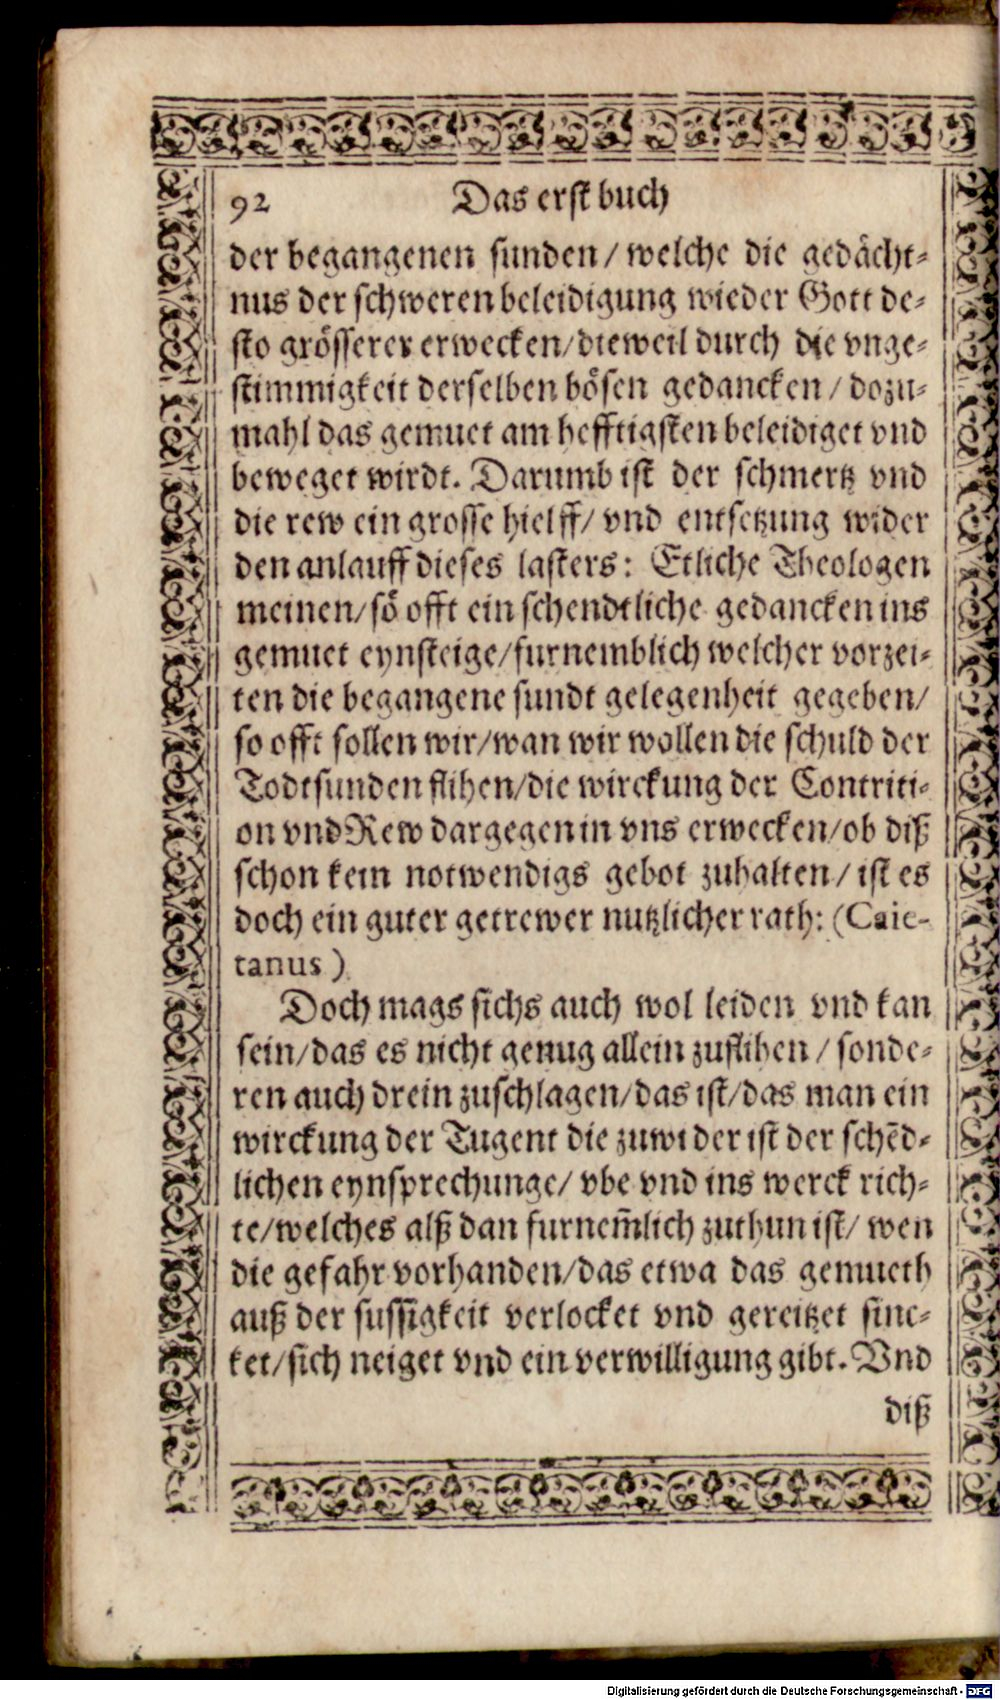 92 Das erst buch
der begangenen sunden / welche die gedächt⸗
nus der schweren beleidigung wieder Gott de⸗
sto grösserer erwecken/dieweil durch die vnge⸗
stimmigkeit derselben bösen gedancken / dozu⸗
mahl das gemuet am hefftigsten beleidiget vnd
beweget wirdt. Darumb ist der schmertz vnd
die rew ein grosse hielff/ vnd entsetzung wider
den anlauff dieses lasters: Etliche Theologen
meinen/ sö offt ein schendtliche gedancken ins
gemuet eynsteige/furnemblich welcher vorzei⸗
ten die begangene sundt gelegenheit gegeben/
so offt sollen wir/wan wir wollen die schuld der
Todtsunden flihen/die wirckung der Contriti⸗
on vnd Rew dargegen in vns erwecken/ob diß
schon kein notwendigs gebot zuhalten/ ist es
doch ein guter getrewer nutzlicher rath: (Caie-
tanus )
Doch mags sichs auch wol leiden vnd kan
sein/das es nicht genug allein zuflihen / sonde⸗
ren auch drein zuschlagen/das ist/das man ein
wirckung der Tugent die zuwider ist der schēd⸗
lichen eynsprechunge/ vbe vnd ins werck rich⸗
te/welches alß dan furnem̄lich zuthun ist/ wen
die gefahr vorhanden/das etwa das gemueth
auß der sussigkeit verlocket vnd gereitzet sinc⸗
ket/sich neiget vnd ein verwilligung gibt. Vnd
diß
Digitalisierung gefördert durch die Deutsche Forschungsgemeinschaft - DFG